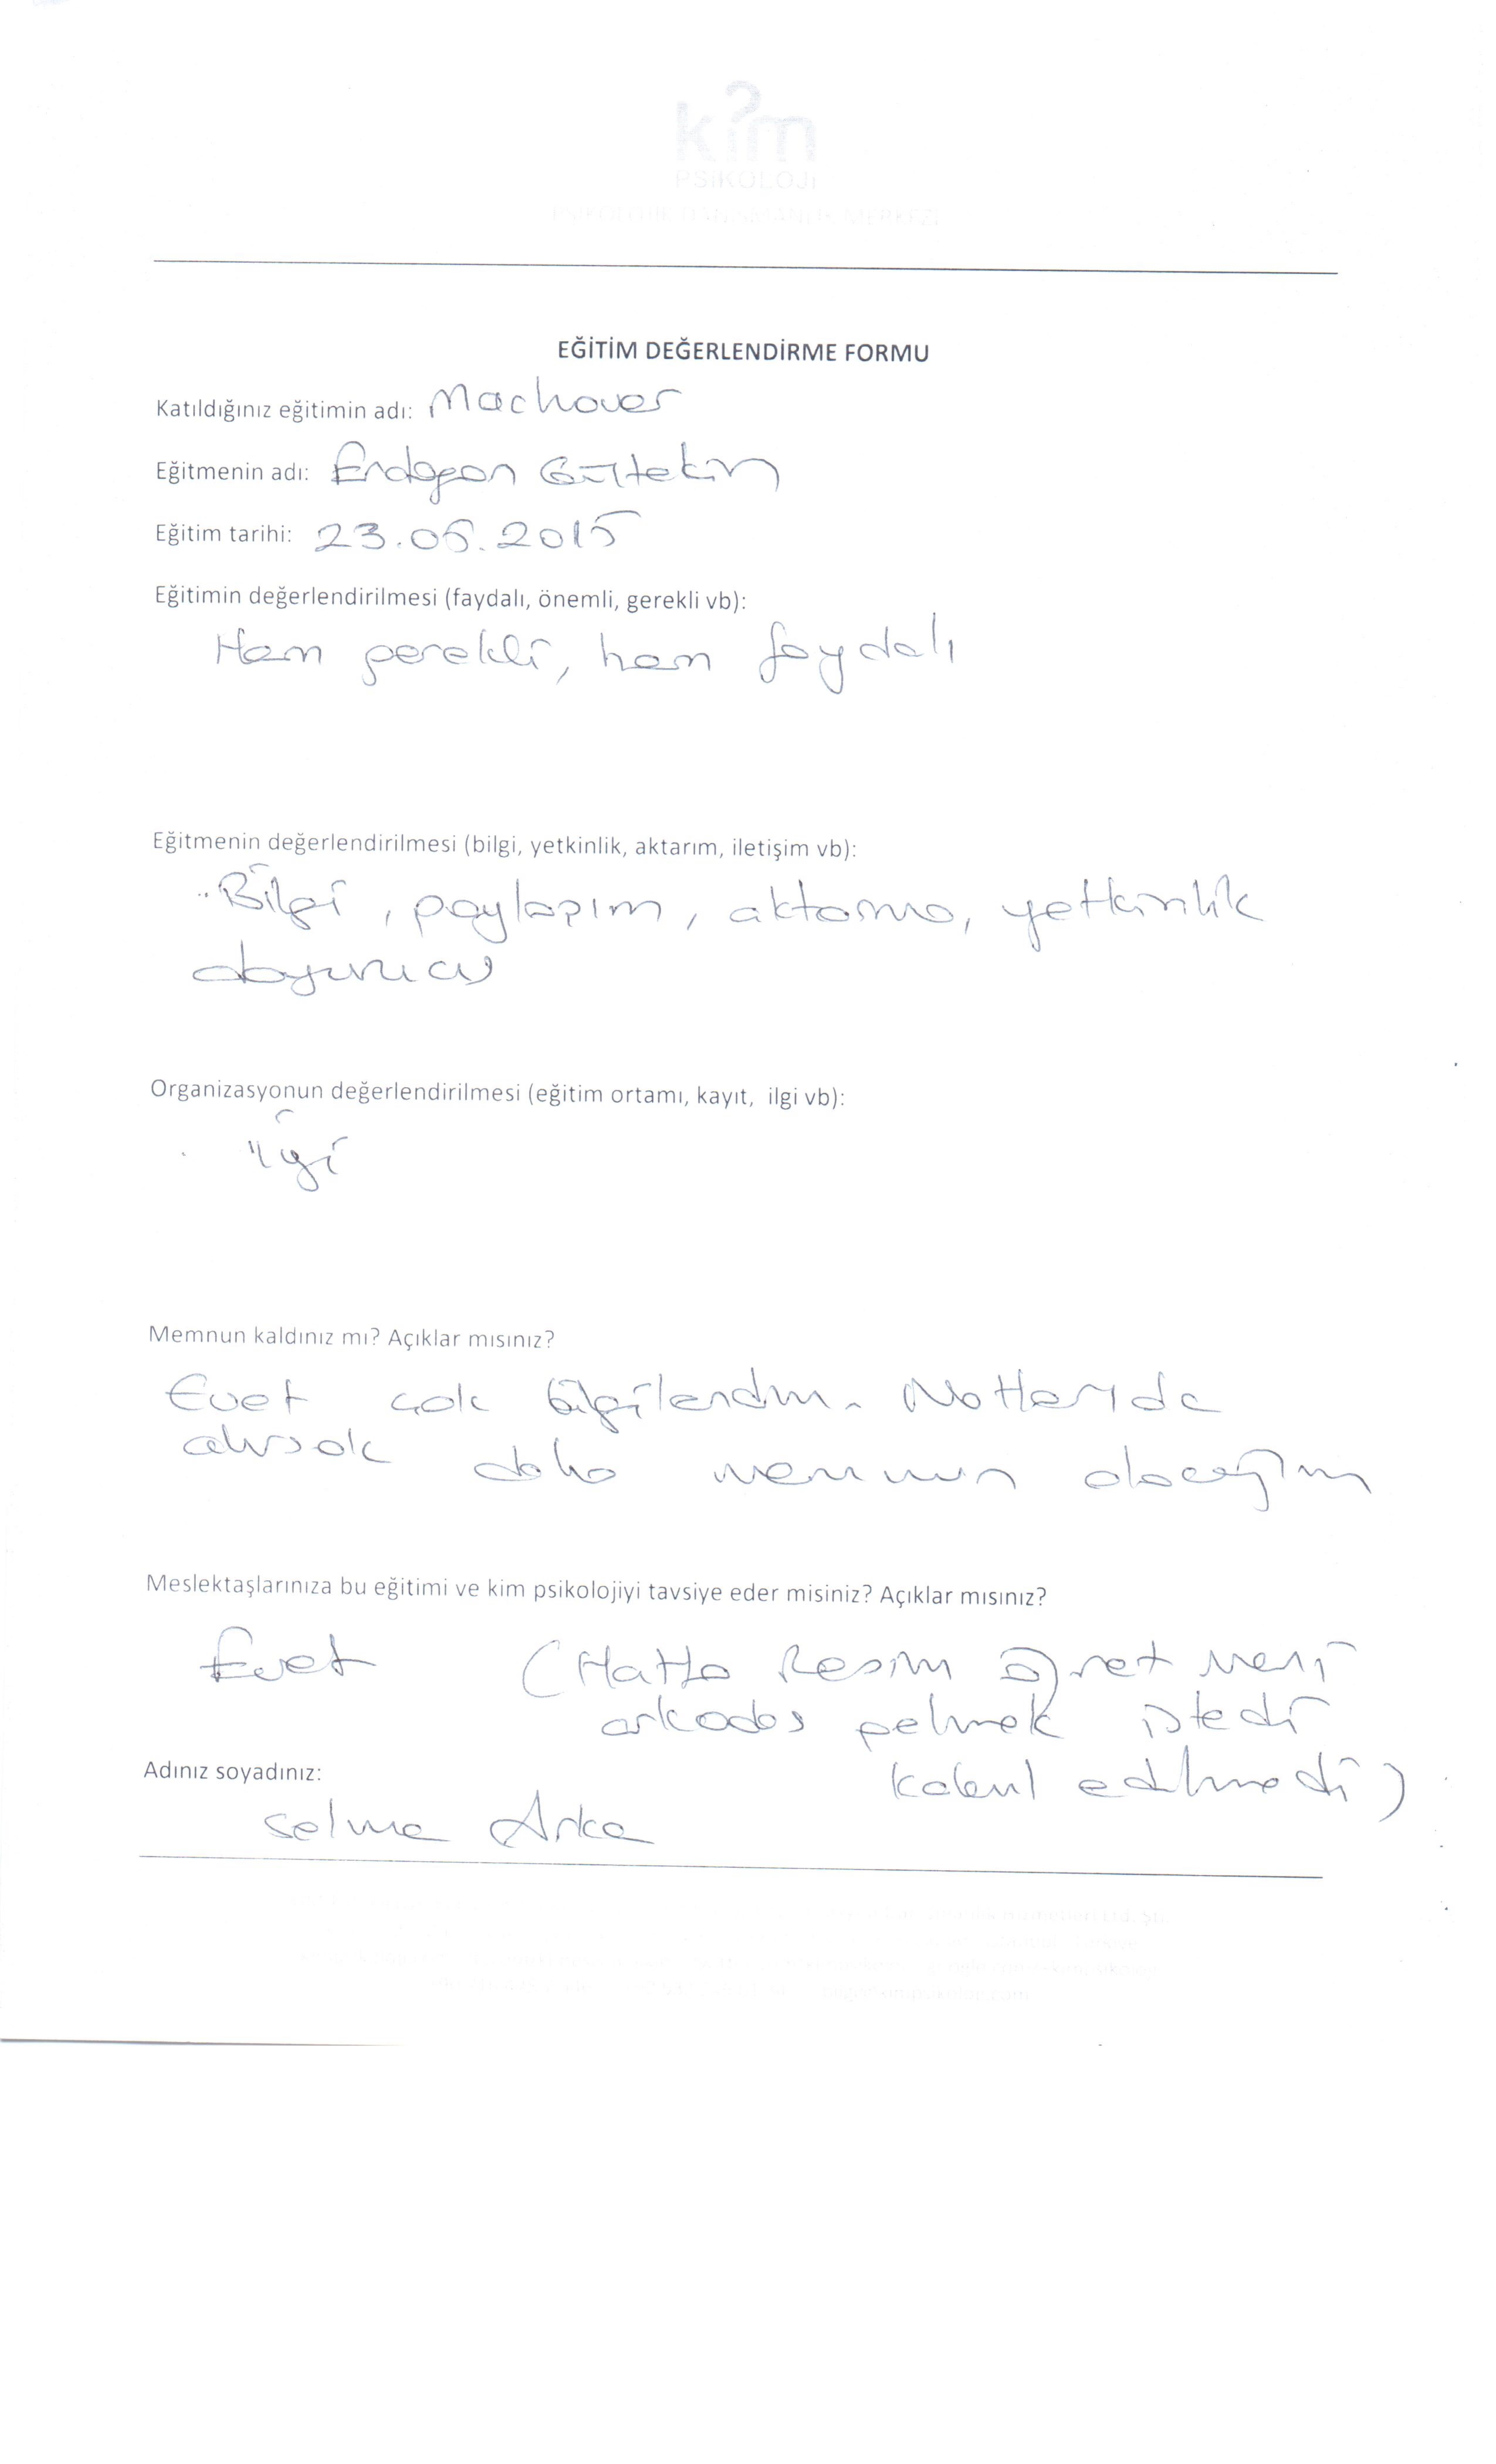 kim
PSİKOLOJİ
PSİKOLOJİK DANIŞMANLIK MERKEZİ
EĞİTİM DEĞERLENDİRME FORMU
Katıldığınız eğitimin adı: Machover
Eğitmenin adı: Erdogan Gültekin
Eğitim tarihi: 23.05.2015
Eğitimin değerlendirilmesi (faydalı, önemli, gerekli vb):
Hem gerekli, hem faydalı
Eğitmenin değerlendirilmesi (bilgi, yetkinlik, aktarım, iletişim vb):
Bilgi, paylaşım, aktarma, yetkinlik
doyurucu
Organizasyonun değerlendirilmesi (eğitim ortamı, kayıt, ilgi vb):
ilgi
Memnun kaldınız mı? Açıklar mısınız?
Evet çok bilgilendim. Notlarıda
alırsak daha memnun olacağım
Meslektaşlarınıza bu eğitimi ve kim psikolojiyi tavsiye eder misiniz? Açıklar mısınız?
Evet (Hatta Resim öğretmeni
arkadaş gelmek istedi
kabul edilmedi)
Adınız soyadınız:
Selma Arka